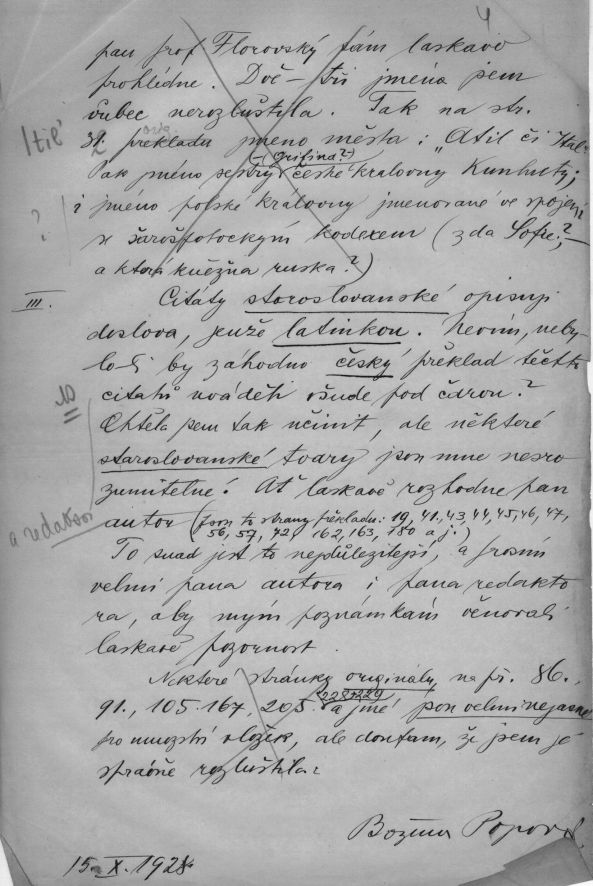 4
pan prof Florovský sám laskavě
prohlédne. Dvě – tři jména jsem
vůbec nerozluštila. Tak na str.
Itil
31. překladu jmeno města: "Atil či Ital"
orig.
(Grifina?)
Pak jméno sestry české královny Kunhuty;
? i jméno polské královny jmenované ve spojení
se šarošpotockým kodexem (zda Sofie?, –
a která kněžna ruska?)
III. Citáty staroslovanské opisuji
doslova, jenže latinkou. Nevím, neby-
lo-li by záhodno český překlad těchto
citatů uváděti všude pod čarou?
NB
Chtěla jsem tak učinit, ale některé
staroslovanské tvary jsou mne nesro
zumitelné! Ať laskavě rozhodne pan
a redaktor
autor (jsou to strany překladu: 19, 41, 43, 44, 45, 46, 47,
56, 57, 72, 162, 163, 180 a j.)
To snad jest to nejdůležitejší, a prosím
velmi pana autora i pana redakto
ra, aby mým poznámkám věnovali
laskavě pozornost.
Některé stránky originálu, na př. 86.,
228+229
91., 105. 167, 205. a jiné jsou velmi nejasné
pro množství vložek, ale doufam, že jsem je
správně rozluštila.
Božena Popová
15. X. 1928.